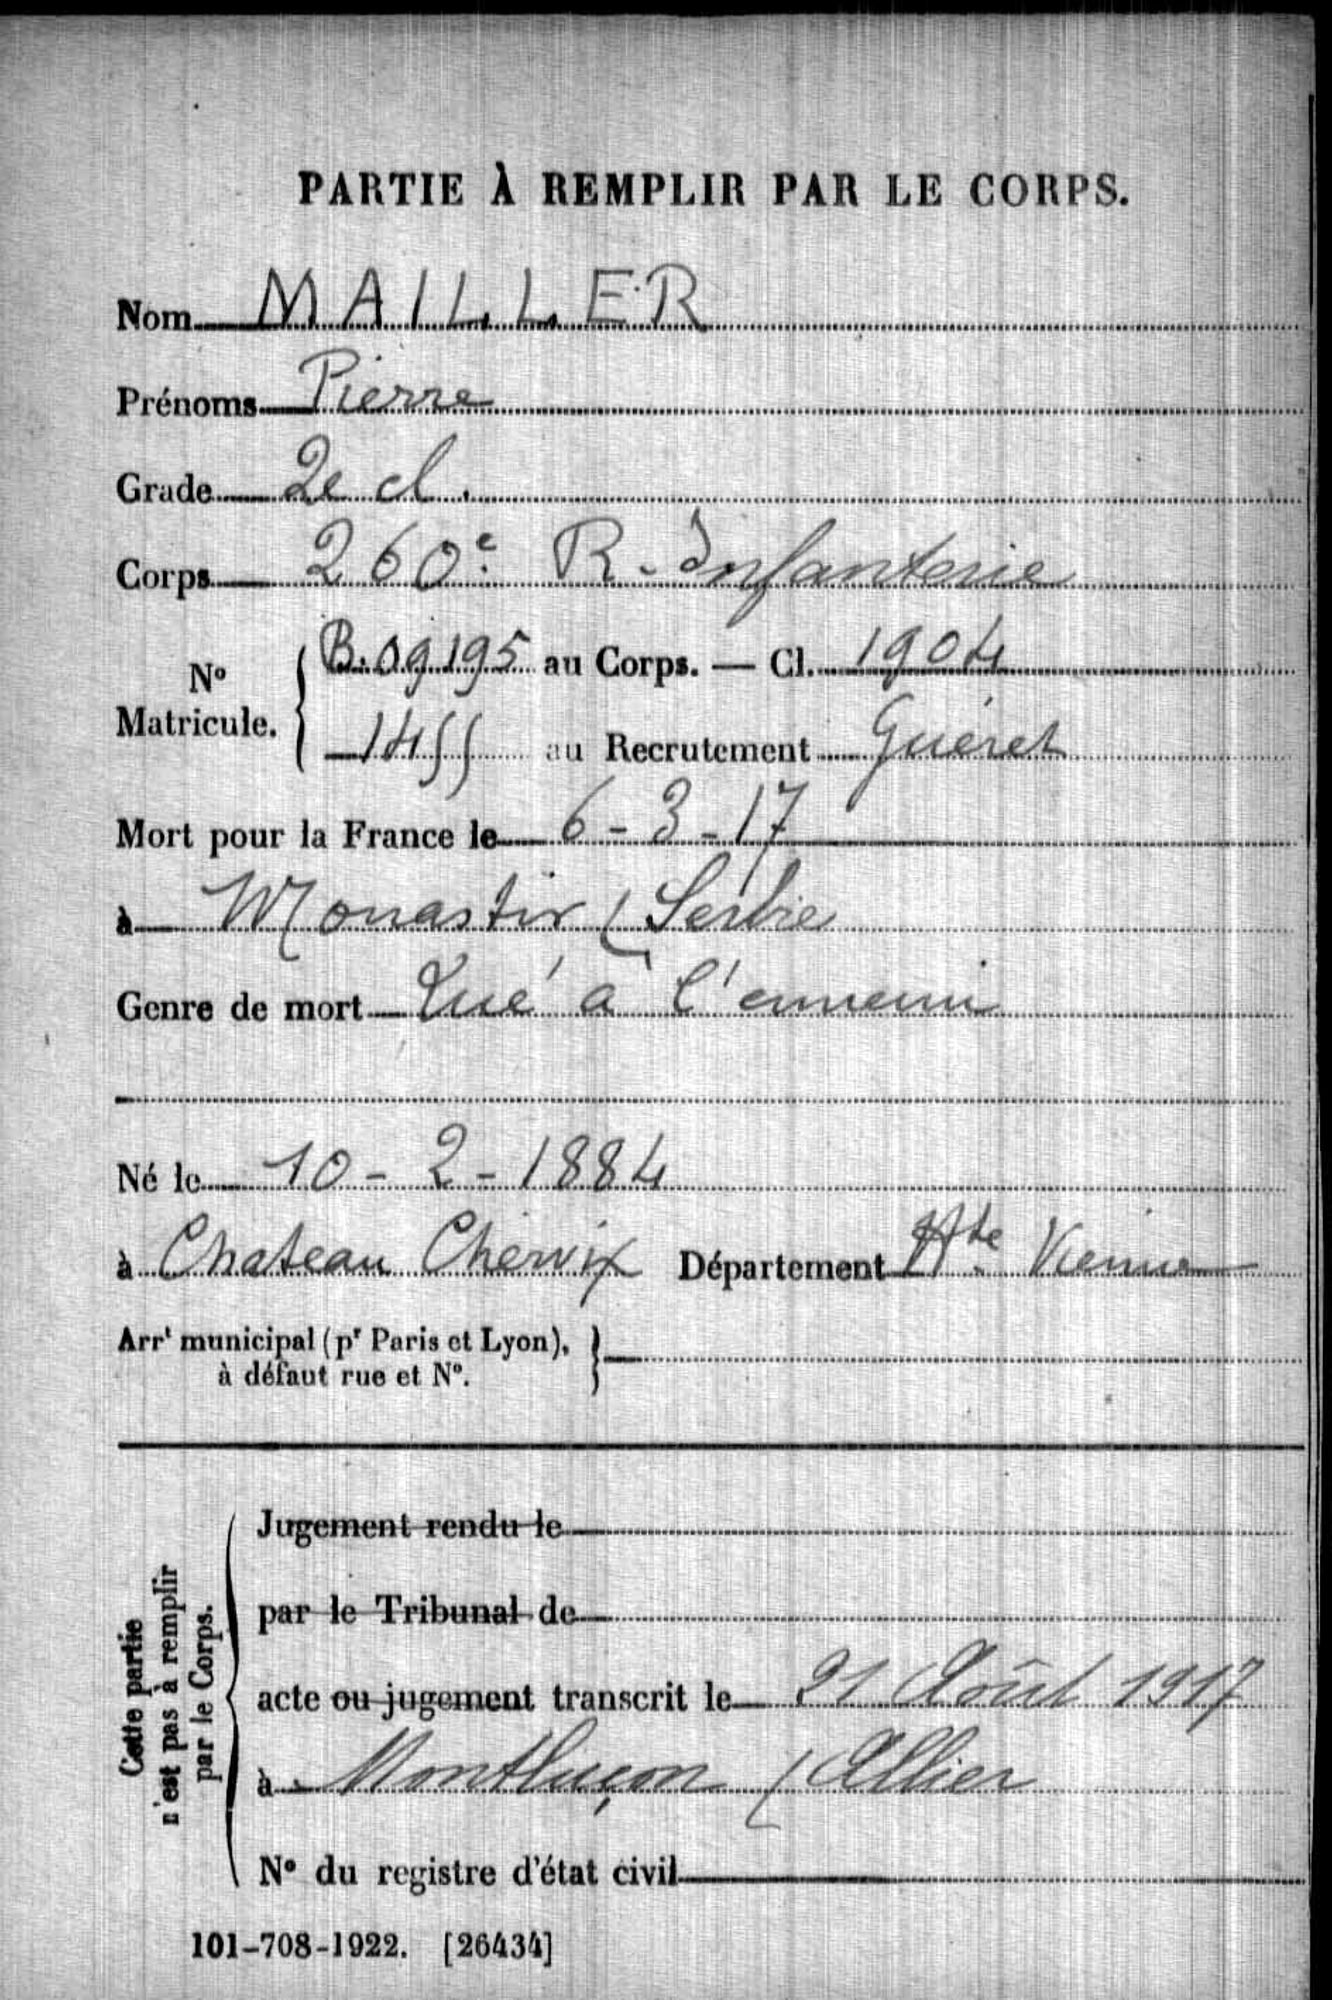 PARTIE À REMPLIR PAR LE CORPS.
Nom MAILLER
Prénoms Pierre
Grade 2e cl.
Corps 260e R. Infanterie
No Matricule. { B.09195 au Corps. — Cl. 1904
1455 au Recrutement Guéret
Mort pour la France le 6-3-17
à Monastir (Serbie
Genre de mort Tué à l'ennemi
Né le 10-2-1884
à Chateau Chervix Département Hte. Vienne
Arrt municipal (pr Paris et Lyon), }
à défaut rue et No.
Cette partie
n'est pas à remplir
par le Corps.
Jugement rendu le
par le Tribunal de
acte ou jugement transcrit le 21 Août 1917
à Montluçon (Allier
No du registre d'état civil
101-708-1922. [26434]